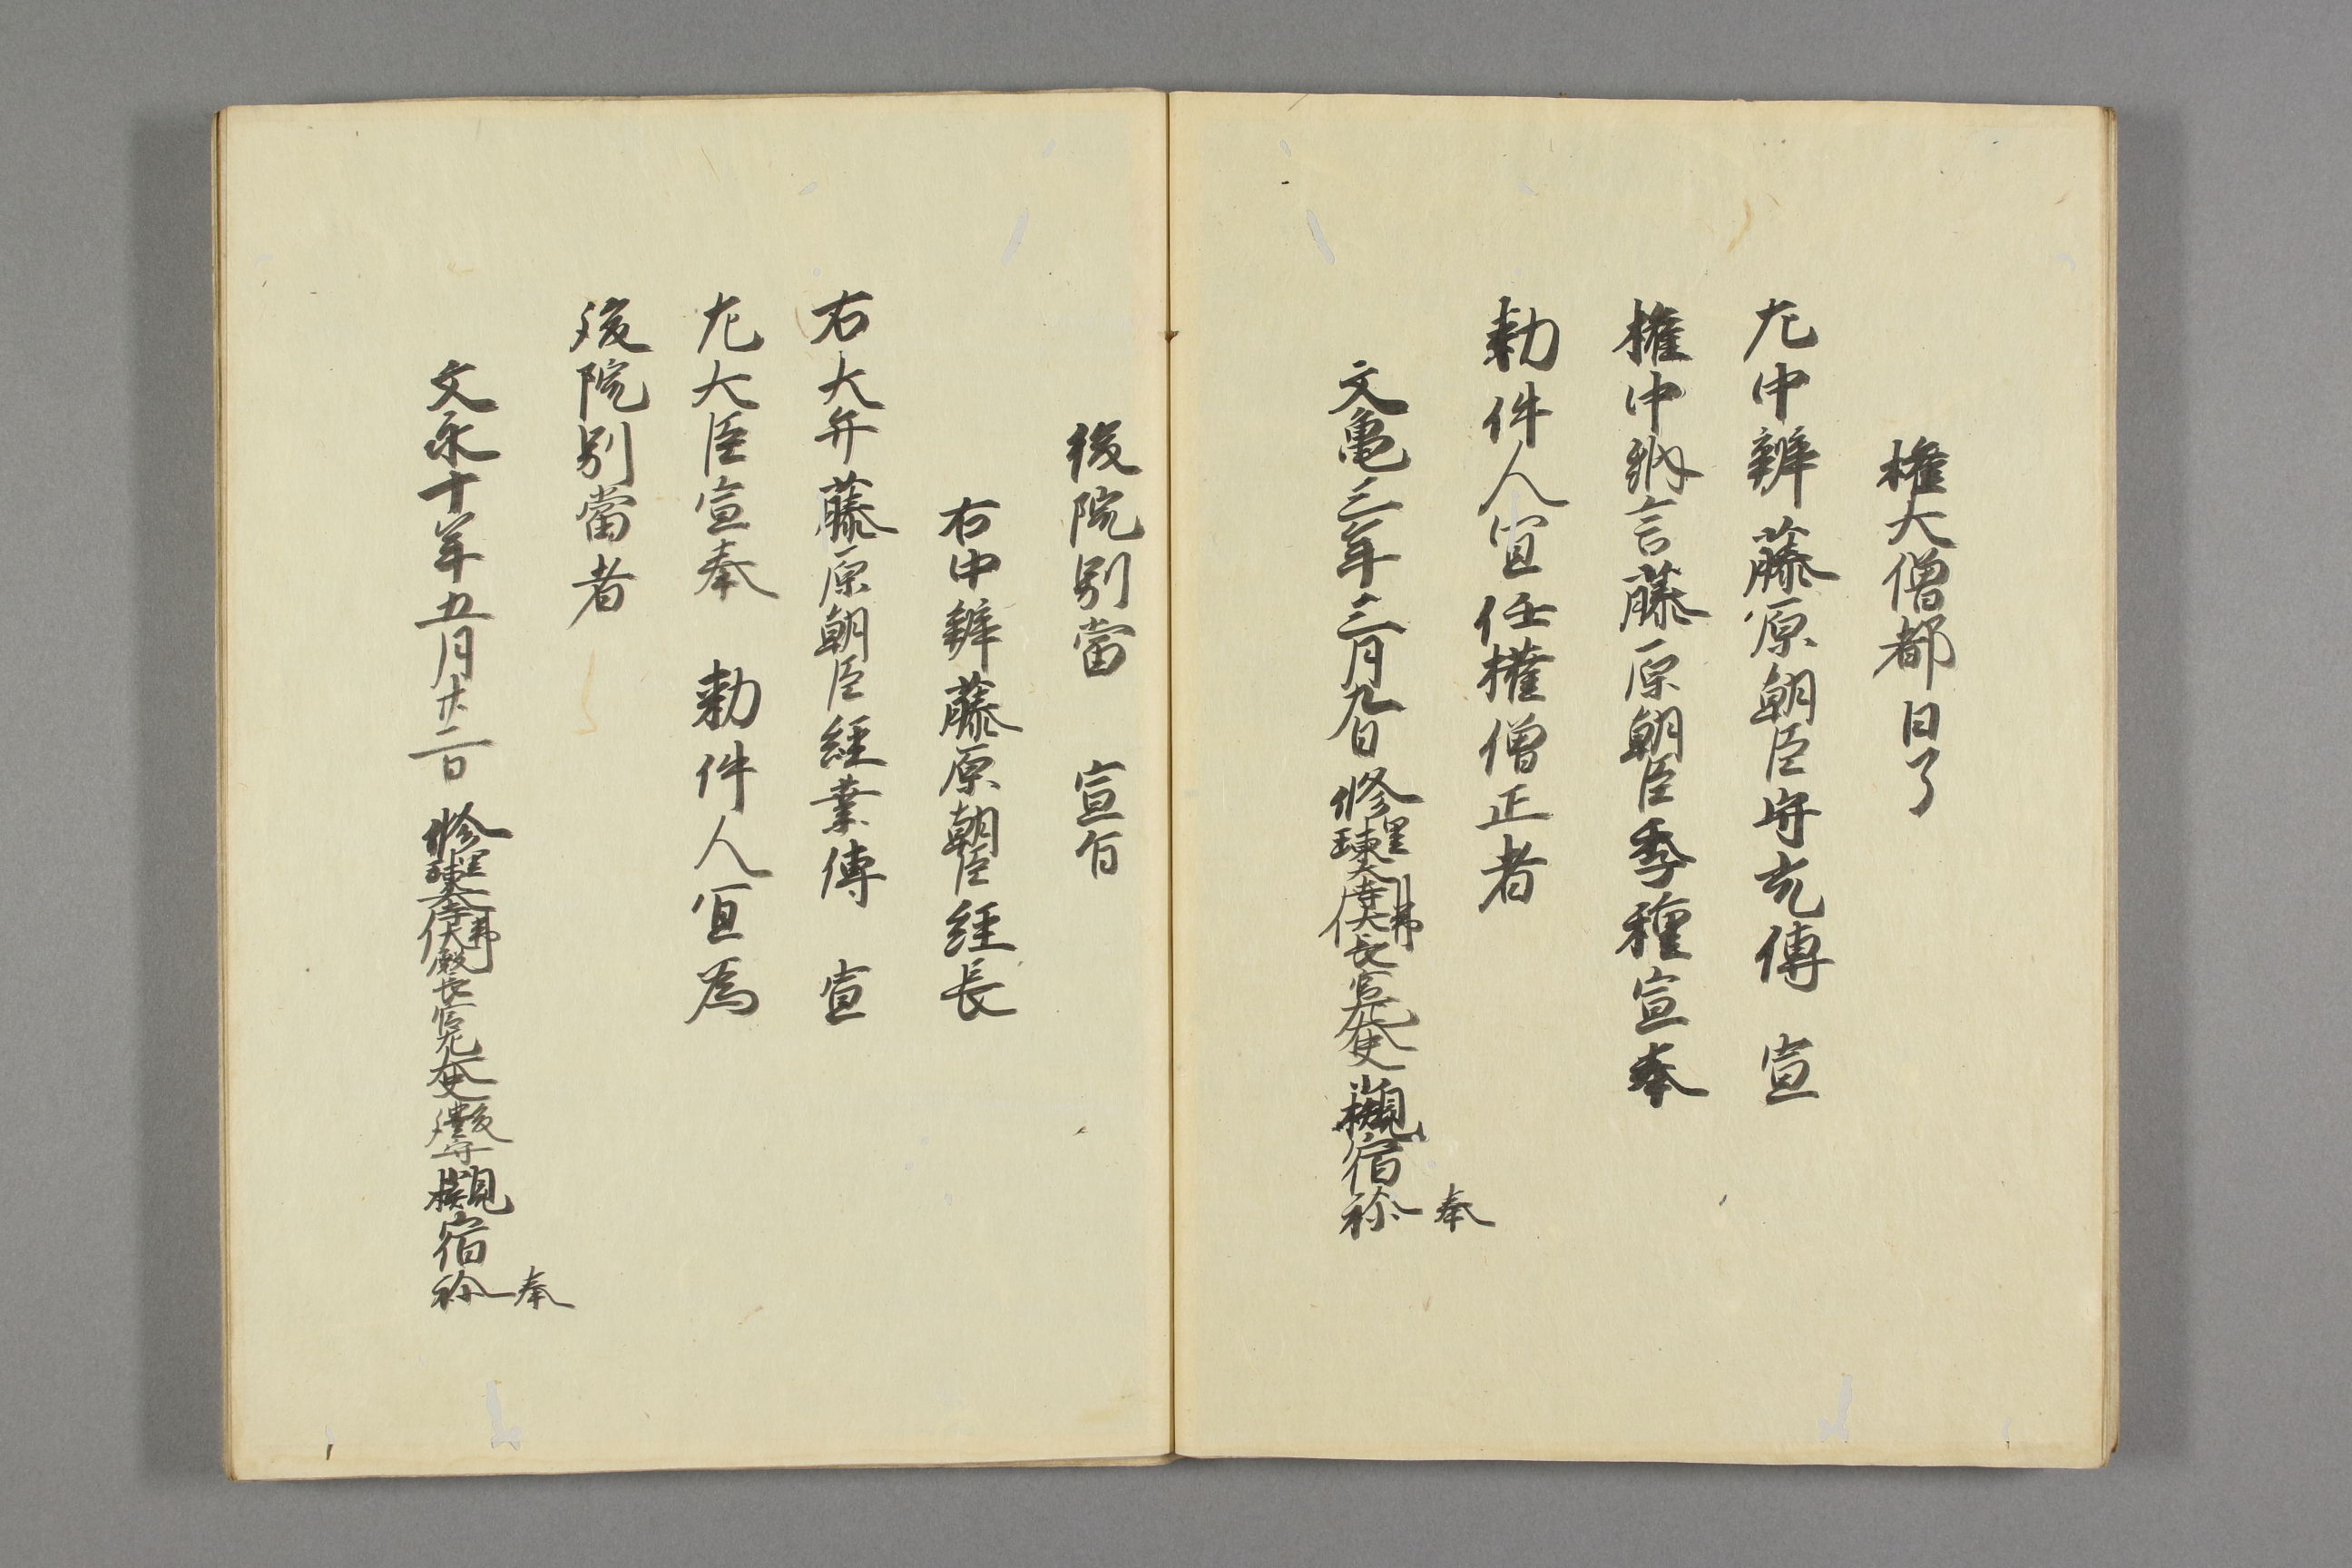 權大僧都日了
左中辨藤原朝臣守光傳　宣
權中納言藤原朝臣季種宣奉
勅件人宜任權僧正者
文亀三年三月九日修理東大寺大佛長官左大史小槻宿祢奉
後院別當　宣旨
右中辨藤原朝臣經長
右大弁藤原朝臣經業傳　宣
左大臣宣奉　勅件人宜為
後院別當者
文永十年五月廿二日修理東大寺大佛殿長官左大史小槻宿祢奉